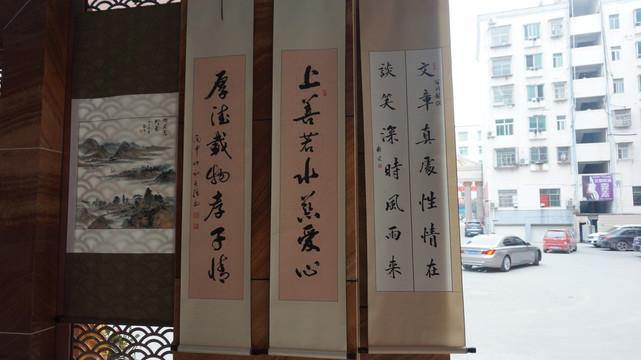 文章真處性情在
談笑深時風雨來
上善若水慈愛心
厚德載物孝子情